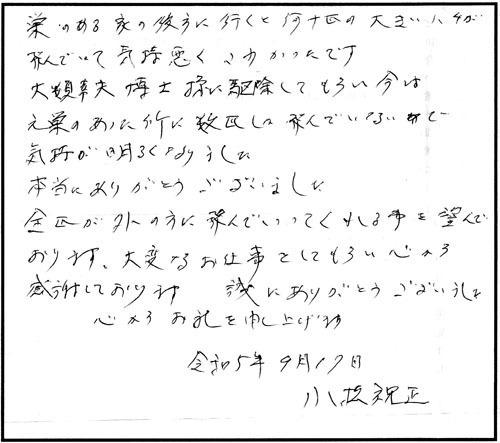 巣のある家の後方に行くと何十匹の大きいハチが
飛んでいて気持悪くこわかったです
大頻幸夫博士様に駆除してもらい今は
元巣のあった所に数匹しか飛んでいないので
気持が明るくなりました
本当にありがとうございました
全匹が外の方に飛んでいってくれる事を望んで
おります、大変なお仕事をしてもらい心から
感謝しております 誠にありがとうございました
心からお礼を申し上げます
令和5年9月17日
小 正